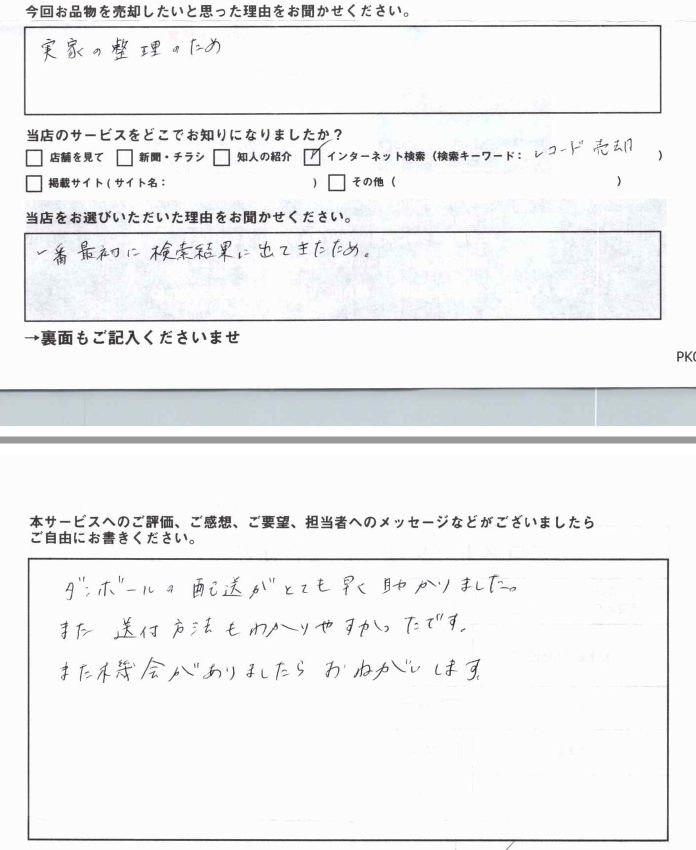 今回お品物を売却したいと思った理由をお聞かせください。
実家の整理のため
当店のサービスをどこでお知りになりましたか?
□ 店舗を見て □ 新聞・チラシ □ 知人の紹介 ☑ インターネット検索(検索キーワード: レコード 売却 )
□ 掲載サイト(サイト名: ) □ その他( )
当店をお選びいただいた理由をお聞かせください。
一番最初に検索結果に出てきたため。
→裏面もご記入くださいませ
PK
本サービスへのご評価、ご感想、ご要望、担当者へのメッセージなどがございましたら
ご自由にお書きください。
ダンボールの配送がとても早く助かりました。
また 送付方法もわかりやすかったです。
また機会がありましたらおねがいします。